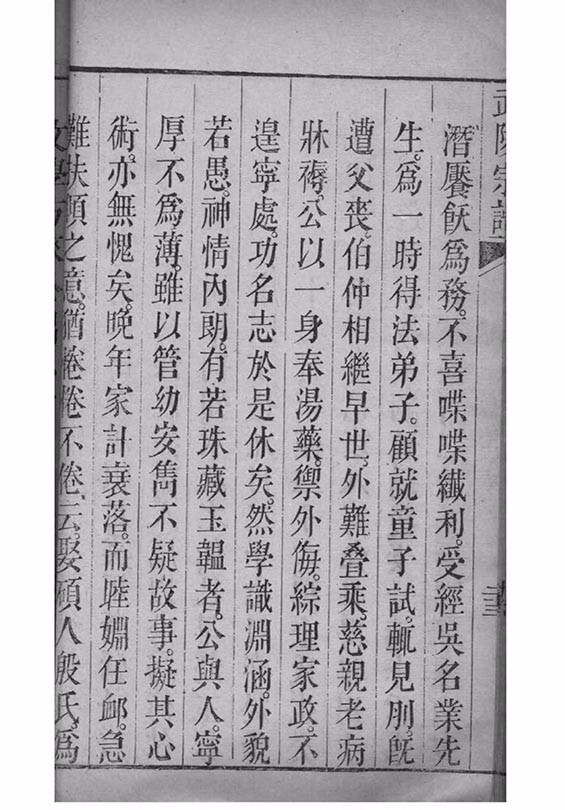 武陵宗譜
潛饜飫爲務。不喜喋喋纖利。受經吳名業先
生。爲一時得法弟子。顧就童子試。輒見刖。旣
遭父喪。伯仲相繼早世。外難叠乘。慈親老病
牀褥。公以一身奉湯藥。禦外侮。綜理家政。不
遑寧處。功名志於是休矣。然學識淵涵。外貌
若愚。神情內朗。有若珠藏玉韞者。公與人。寧
厚不爲薄。雖以管幼安雋不疑故事。擬其心
術。亦無愧矣。晚年家計衰落。而睦婣任卹。急
難扶顛之意。猶惓惓不倦云。娶碩人殷氏。爲